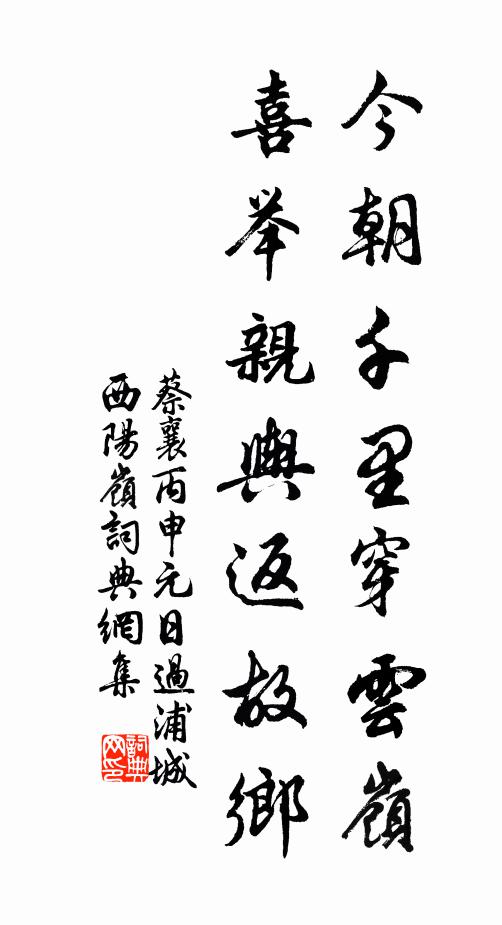 今朝千里穿雲嶺
喜举親輿返故鄉
蔡襄丙申元日過浦城
西陽嶺詞典網集
詞典
网印